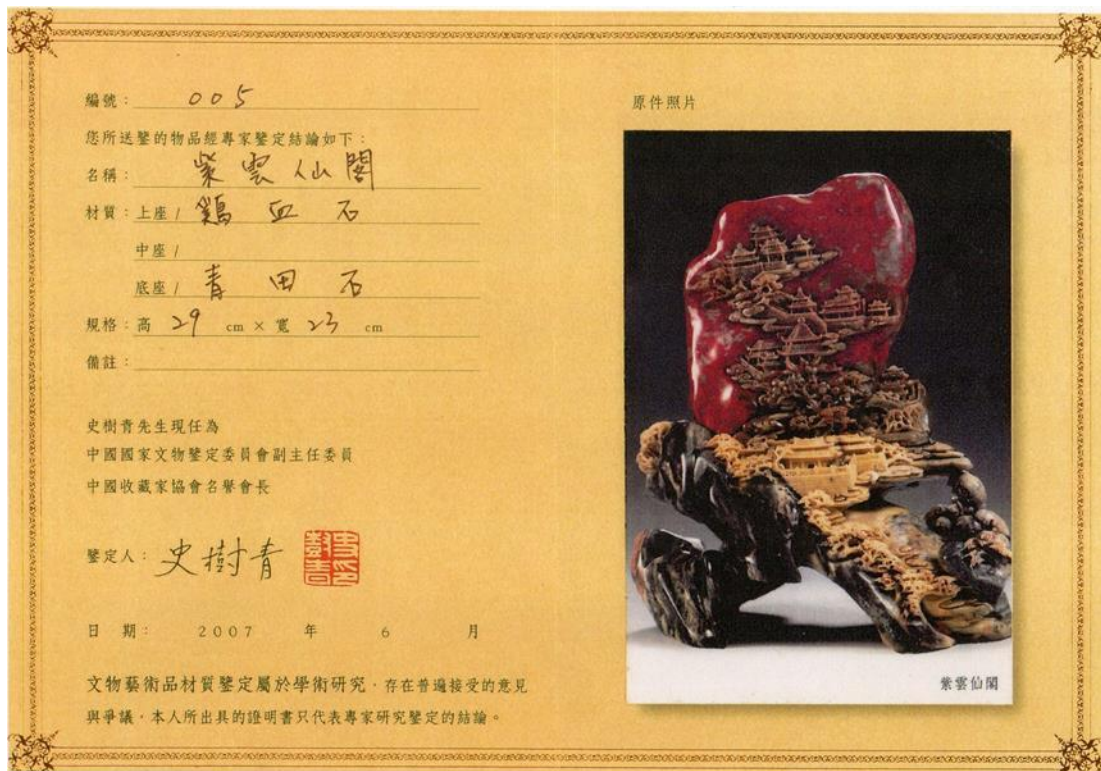 編號：005
您所送鑒的物品經專家鑒定結論如下：
名稱：紫雲仙閣
材質：上座/ 鷄血石
中座/
底座/ 青田石
規格：高 29 cm × 寬 23 cm
備註：
史樹青先生現任為
中國國家文物鑒定委員會副主任委員
中國收藏家協會名譽會長
鑒定人：史樹青
史印樹青
日 期： 2007 年 6 月
文物藝術品材質鑒定屬於學術研究，存在普遍接受的意見
與爭議，本人所出具的證明書只代表專家研究鑒定的結論。
原件照片
紫雲仙閣